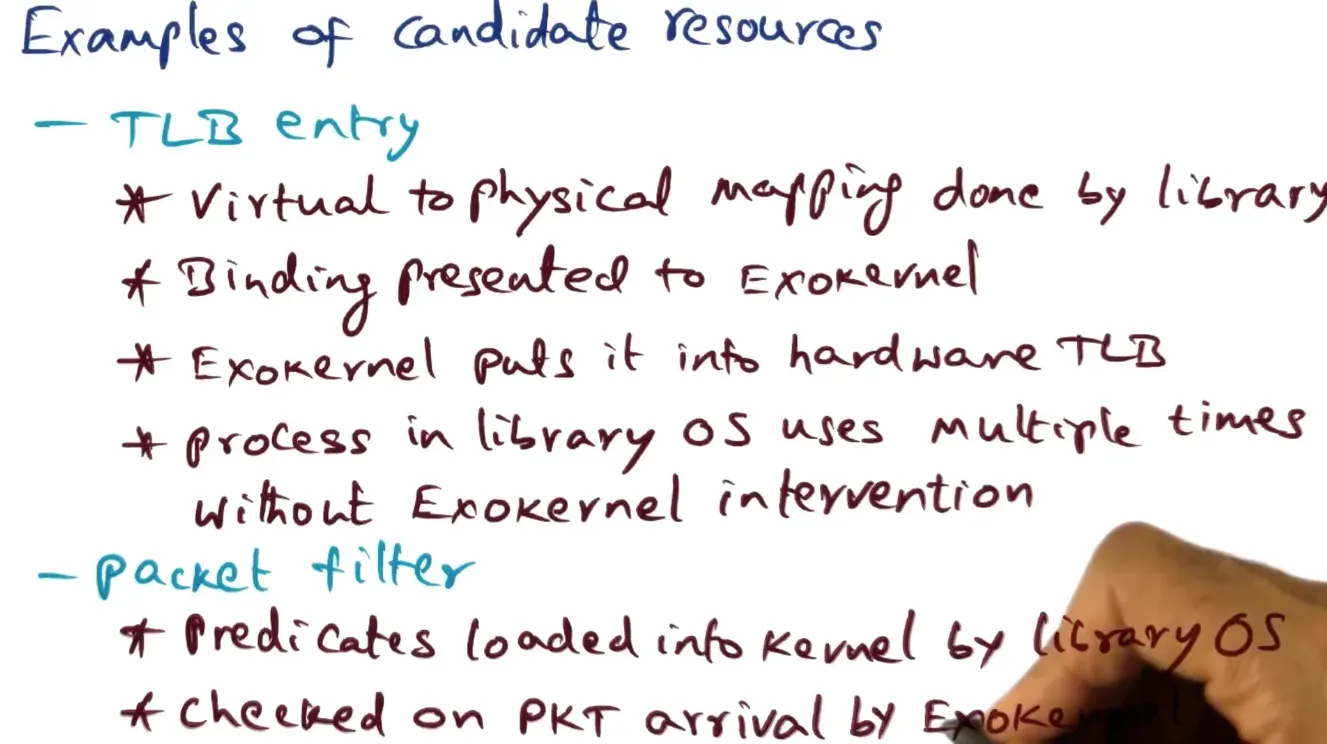 Examples of candidate resources
- TLB entry
* Virtual to physical mapping done by library
* Binding presented to Exokernel
* Exokernel puts it into hardware TLB
* process in library OS uses multiple times
without Exokernel intervention
- packet filter
* Predicates loaded into kernel by library OS
* checked on PKT arrival by Exokernel